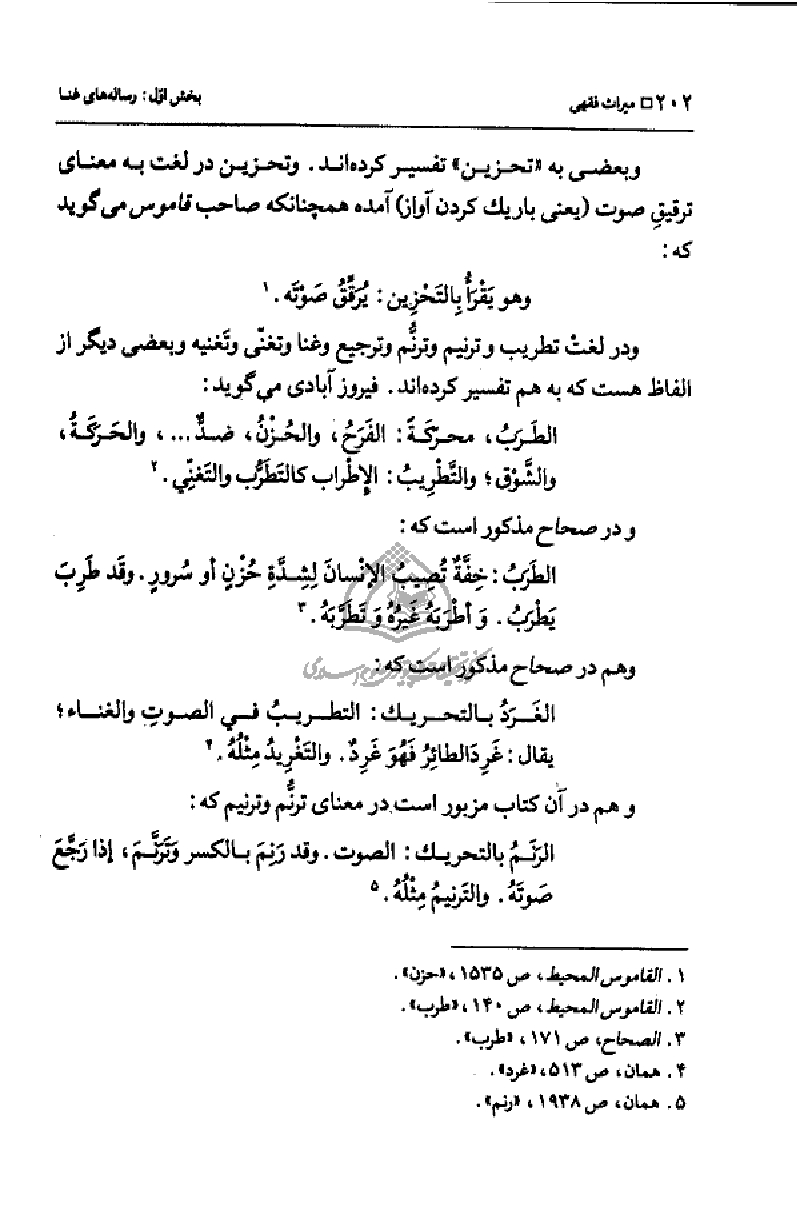 ۲۰۲ □ میراث فقهی بخش اوّل: رساله‌های غنا
وبعضـی به «تحـزیـن» تفسیـر کرده‌انـد. وتحـزیـن در لغت بـه معنـای
ترقیقِ صوت (یعنی باریك کردن آواز) آمده همچنانکه صاحب قاموس می‌گوید
که:
وهو یَقْرَأُ بِالتَحْزِین: یُرَقِّقُ صَوْتَه.۱
ودر لغتْ تطریب و ترنیم وترنُّم وترجیع وغنا وتغنّی وتَغنیه وبعضی دیگر از
الفاظ هست که به هم تفسیر کرده‌اند. فیروز آبادی می‌گوید:
الطـرَبُ، محـرّکَةً: الفَرَحُ، والحُـزْنُ، ضـدٌّ...، والحَـرَکَـةُ،
والشَّوْق؛ والتَّطْرِیبُ: الإطْراب کالتَطَرُّب والتَغنّي.۲
و در صحاح مذکور است که:
الطَرَبُ: خِفَّةٌ تُصِیبُ الإنْسانَ لِشِدَّةِ حُزْنٍ أو سُرورٍ. وقَد طَرِبَ
یَطْرَبُ. وَ أطْرَبَهُ غَیْرُهُ وَ تَطَرَّبَهُ.۳
وهم در صحاح مذکور است که:
الغَـرَدُ بـالتحـریـك: التطـریـبُ فـي الصـوتِ والغنـاء؛
یقال: غَرِدَ الطائِرُ فَهُوَ غَرِدٌ. والتَغْرِیدُ مِثْلُهُ.۴
و هم در آن کتاب مزبور است در معنای ترنُّم وترنیم که:
الرَنَـمُ بالتحریـك: الصوت. وقد رَنِمَ بـالکسر وَتَرَنَّـمَ، إذا رَجَّعَ
صَوتَهُ. والتَرنیمُ مِثْلُهُ.۵
۱. القاموس المحیط، ص ۱۵۳۵، «حزن».
۲. القاموس المحیط، ص ۱۴۰، «طرب».
۳. الصحاح، ص ۱۷۱، «طرب».
۴. همان، ص ۵۱۳، «غرد».
۵. همان، ص ۱۹۳۸، «رنم».